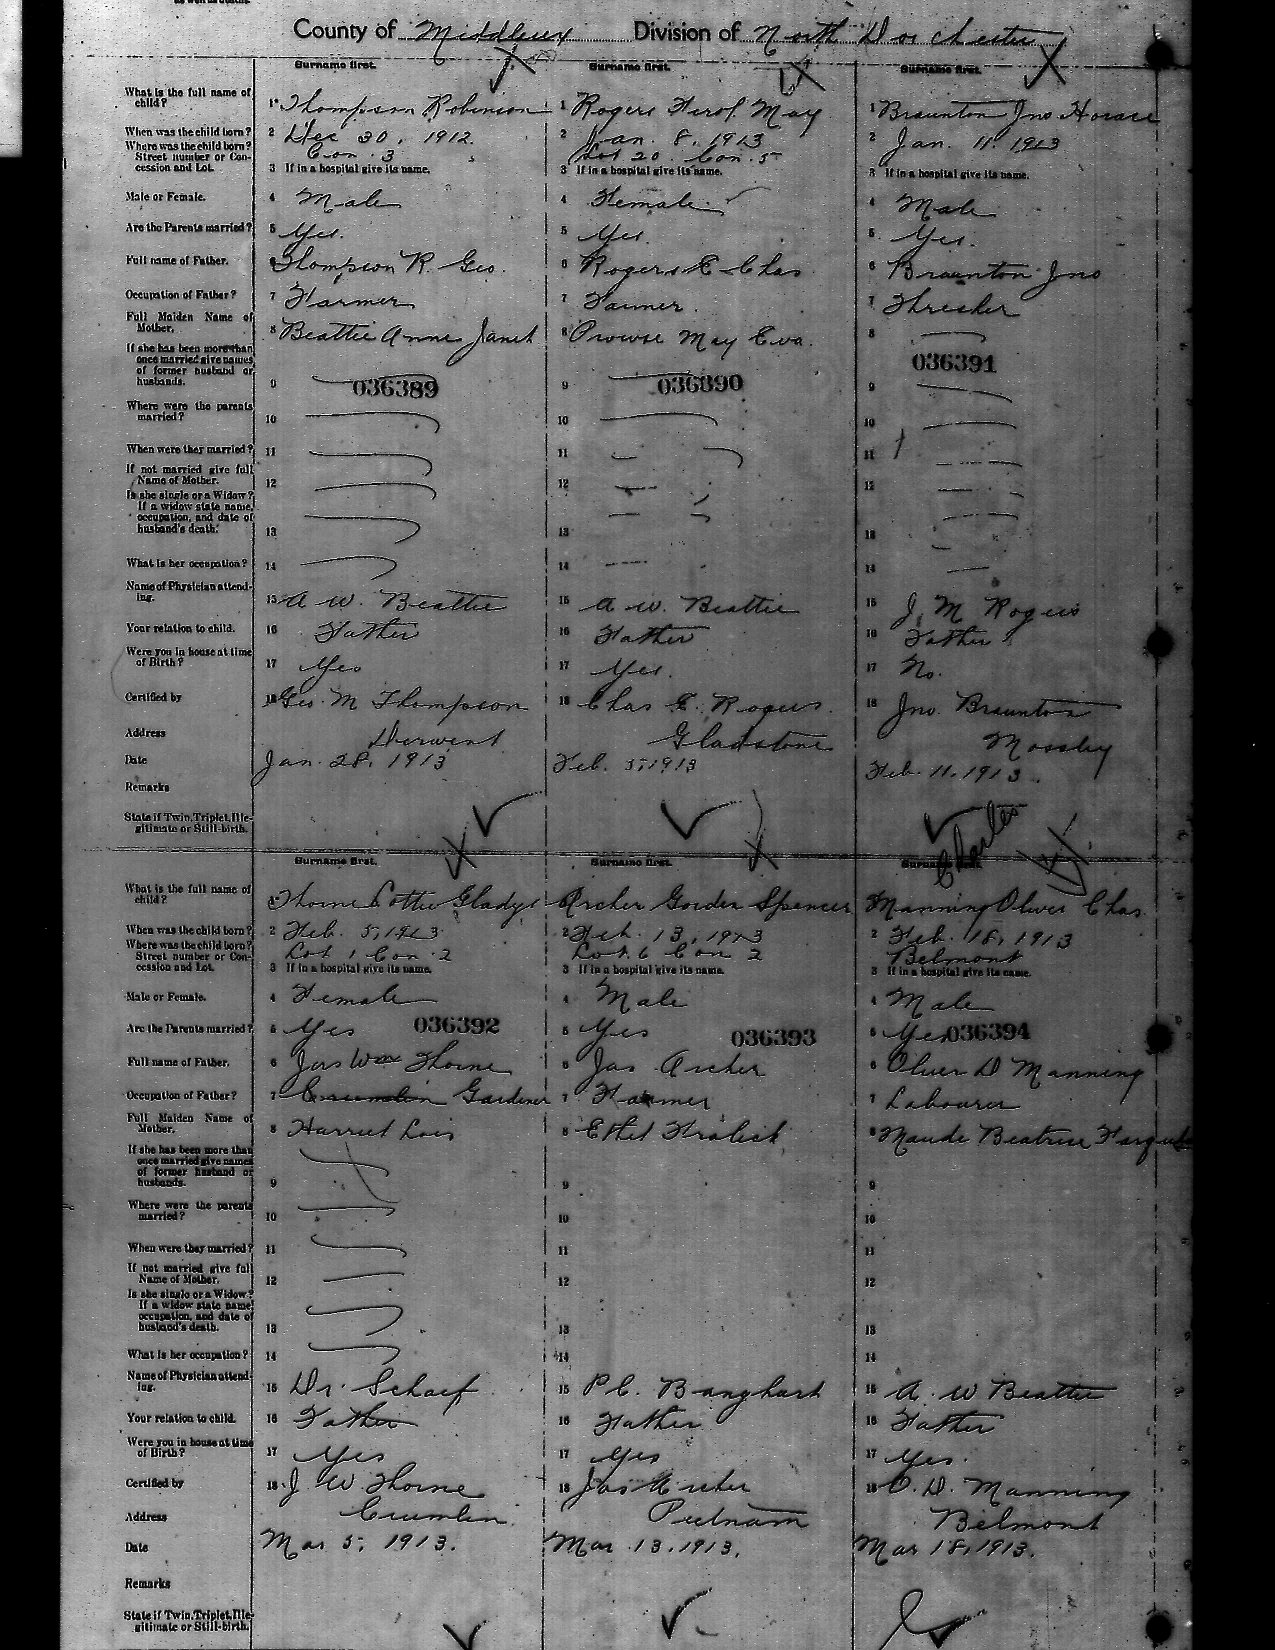 County of Middlesex Division of North Dorchester
Surname first. Surname first. Surname first.
What is the full name of child? 1 Thompson Robinson 1 Rogers Ferol May 1 Braunton Jno Horace
When was the child born? 2 Dec 30, 1912. 2 Jan. 8, 1913 2 Jan. 11. 1913
Where was the child born? Street number or Concession and Lot. Con. 3 Lot 20. Con. 5
3 If in a hospital give its name. 3 If in a hospital give its name. 3 If in a hospital give its name.
Male or Female. 4 Male 4 Female 4 Male
Are the Parents married? 5 Yes. 5 Yes. 5 Yes.
Full name of Father. 6 Thompson R. Geo. 6 Rogers E Chas 6 Braunton Jno
Occupation of Father? 7 Farmer 7 Farmer. 7 Thresher
Full Maiden Name of Mother. 8 Beattie Anne Janet 8 Prowse May Eva. 8
If she has been more than once married give names of former husband or husbands. 9 036389 9 036390 9 036391
Where were the parents married? 10 10 10
When were they married? 11 11 11
If not married give full Name of Mother. 12 12 12
Is she single or a Widow? If a widow state name, occupation, and date of husband's death. 13 13 13
What is her occupation? 14 14 14
Name of Physician attending. 15 A W. Beattie 15 A W. Beattie 15 J. M Rogers
Your relation to child. 16 Father 16 Father 16 Father
Were you in house at time of Birth? 17 Yes 17 Yes. 17 No.
Certified by 18 Geo. M Thompson 18 Chas E. Rogers. 18 Jno. Braunton
Address Derwent Gladstone Mossley
Date Jan. 28, 1913 Feb. 5, 1913 Feb. 11. 1913.
Remarks
State if Twin, Triplet, Illegitimate or Still-birth.
Charles
Surname first. Surname first. Surname first.
What is the full name of child? 1 Thorne Lottie Gladys Archer Gordon Spencer Manning Oliver Chas
When was the child born? 2 Feb. 5, 1913 2 Feb. 13, 1913 2 Feb. 18, 1913
Where was the child born? Street number or Concession and Lot. Lot 1 Con. 2 Lot 6 Con 2 Belmont
3 If in a hospital give its name. 3 If in a hospital give its name. 3 If in a hospital give its name.
Male or Female. 4 Female 4 Male 4 Male
Are the Parents married? 5 Yes 036392 5 Yes 036393 5 Yes 036394
Full name of Father. 6 Jas Wm Thorne 6 Jas Archer 6 Oliver D Manning
Occupation of Father? 7 Crumlin Gardener 7 Farmer 7 Labourer
Full Maiden Name of Mother. 8 Harriet Lois 8 Ethel Fralick 8 Maude Beatrice
If she has been more than once married give names of former husband or husbands. 9 9 9
Where were the parents married? 10 10 10
When were they married? 11 11 11
If not married give full Name of Mother. 12 12 12
Is she single or a Widow? If a widow state name, occupation, and date of husband's death. 13 13 13
What is her occupation? 14 14 14
Name of Physician attending. 15 Dr. Schaef 15 P C. Banghart 15 A. W Beattie
Your relation to child. 16 Father 16 Father 16 Father
Were you in house at time of Birth? 17 Yes 17 Yes 17 Yes.
Certified by 18 J. W. Thorne 18 Jas Archer 18 O. D. Manning
Address Crumlin. Putnam Belmont
Date Mar 5, 1913. Mar. 13. 1913. Mar 18, 1913.
Remarks
State if Twin, Triplet, Illegitimate or Still-birth.